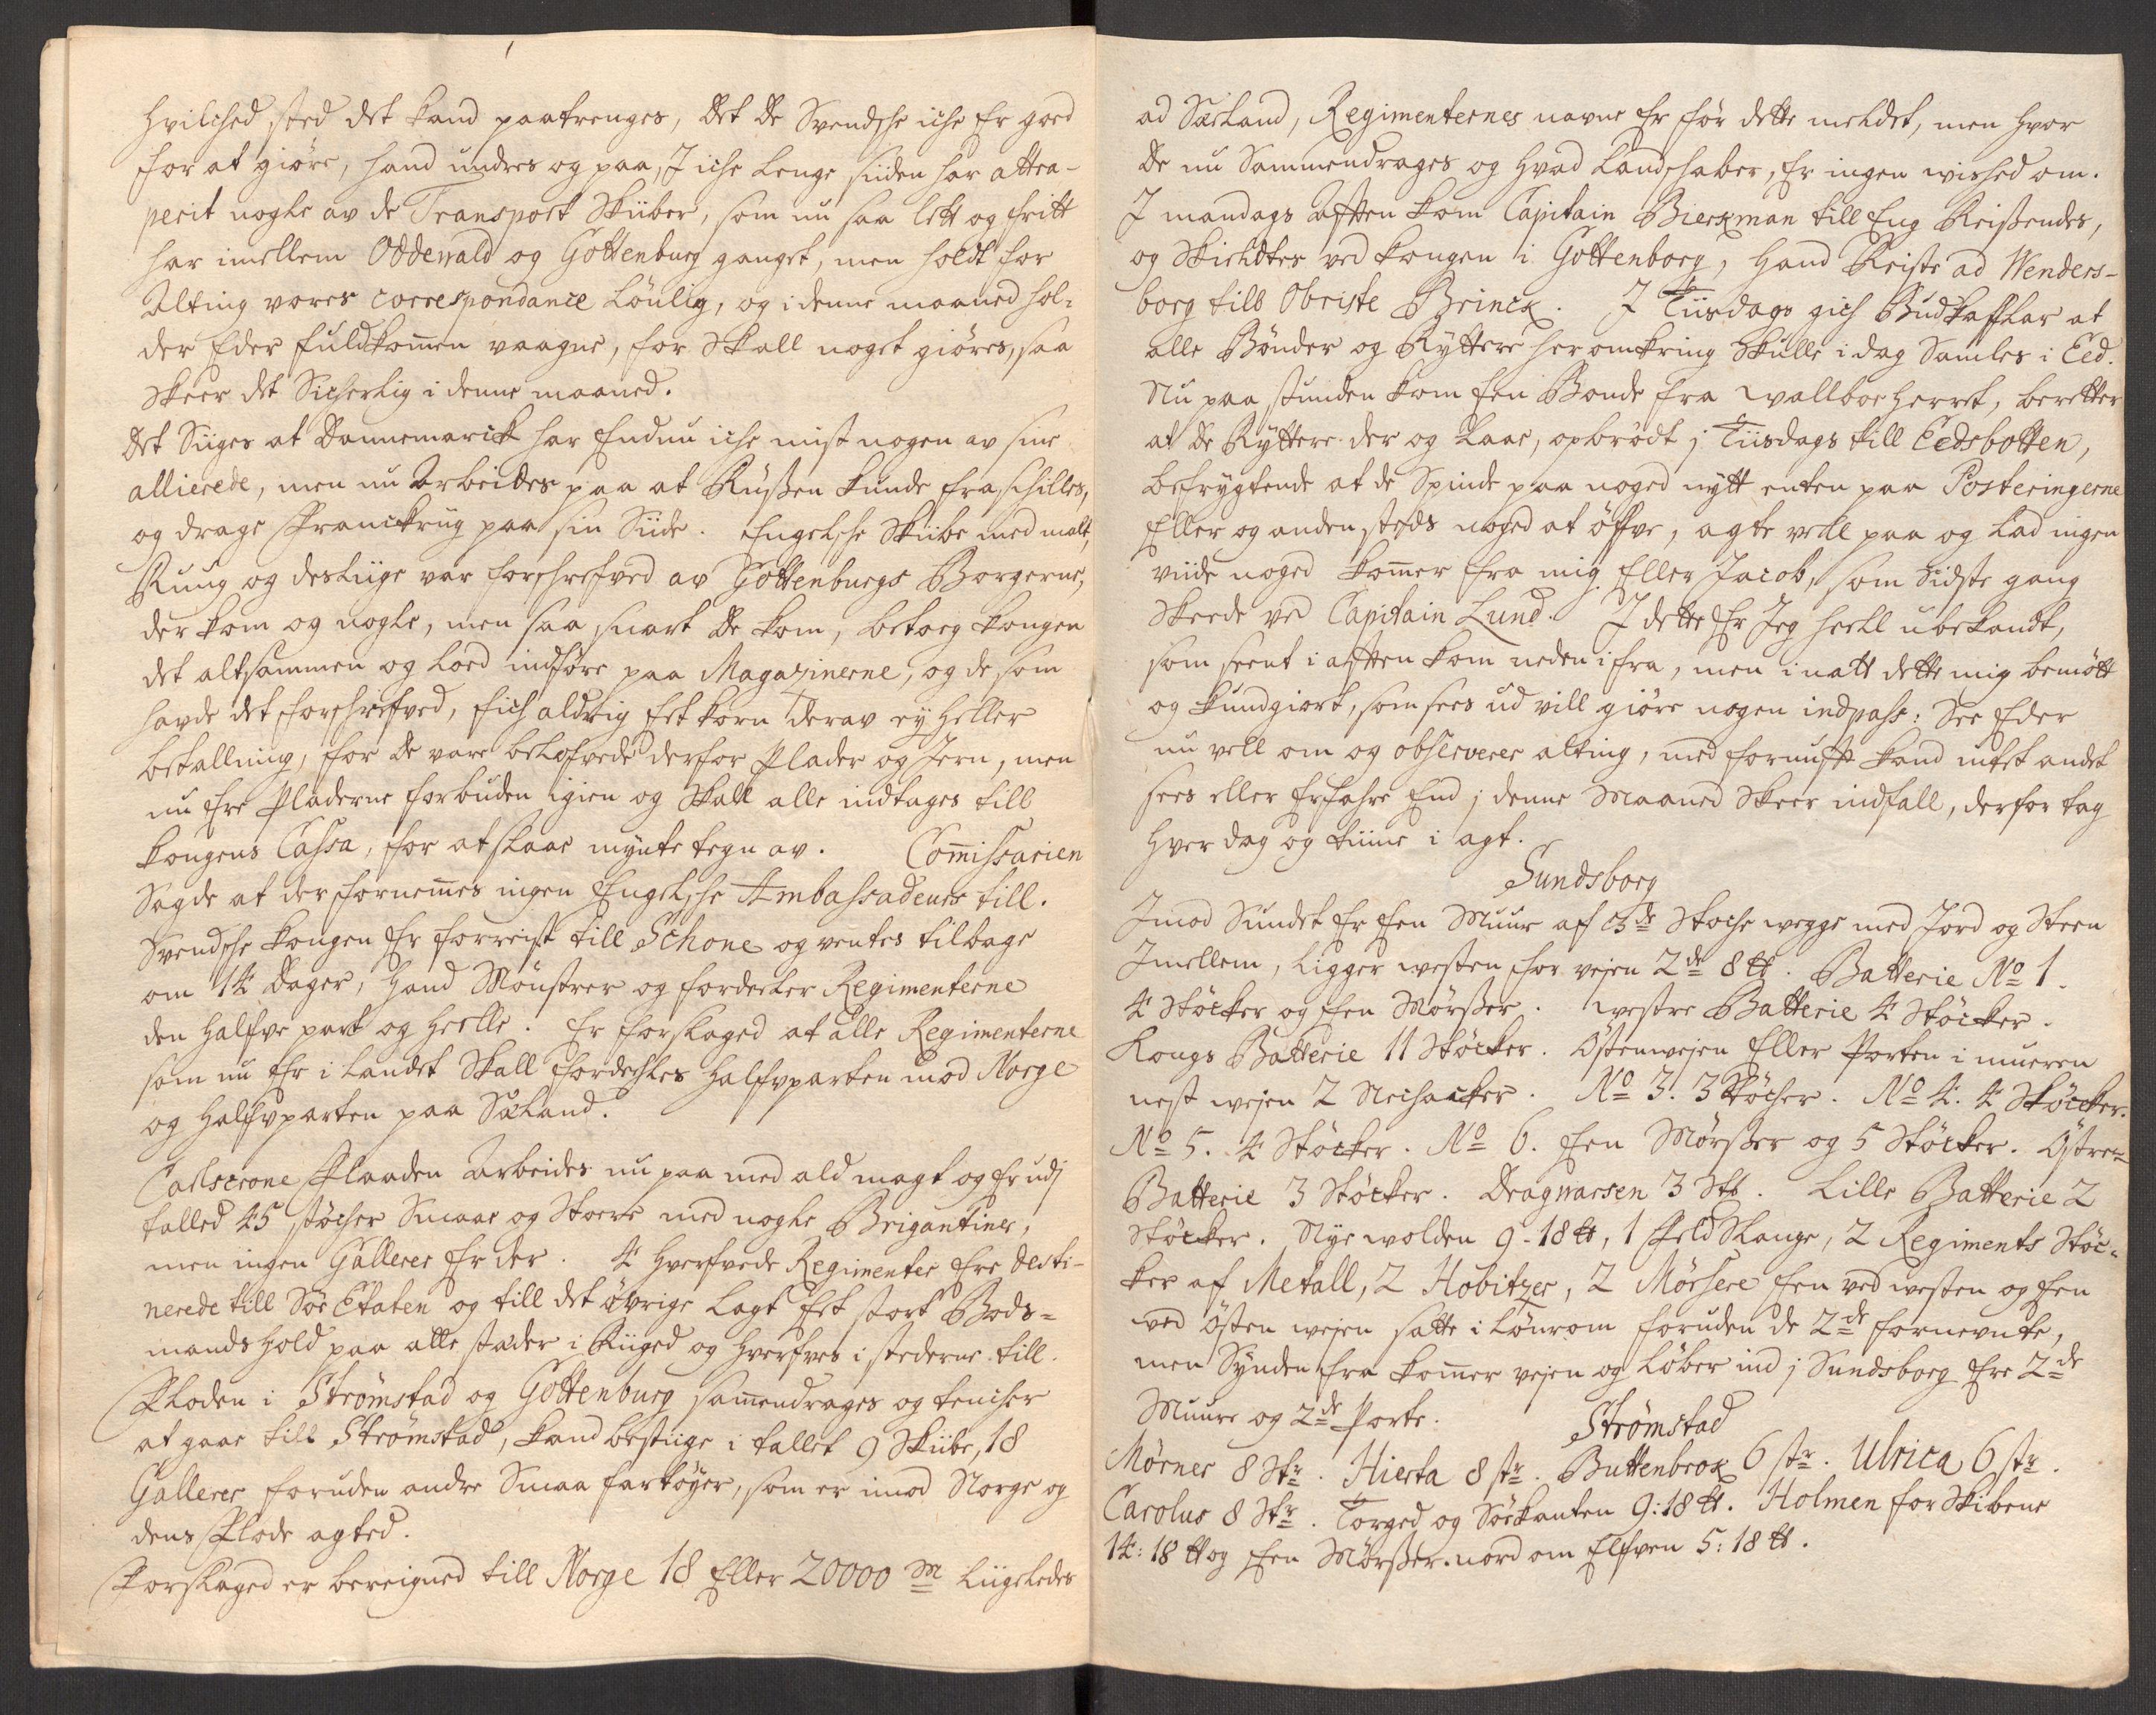 hvilched sted det kand paatrenges, det de Svendsche iche er goed
for at giöre, hand undres og paa, I iche lenge siiden har attra-
perit nogle av de Transport Skiiber, som nu saa lett og fritt
har imellem Oddewald og Gottenburg ganget, men holdt for
Alting vores correspondance Lönlig, og i denne maaned hol-
der Eder fuldkom̄en vaagne, for Skall noget giöres, saa
Skeer det Sicherlig i denne maaned.
Det Siiges at Dannemarck har Endnu iche mist nogen av sine
allierede, men nu Arbeides paa at Rüssen kunde fraschilles,
og drage Franckrüg paa sin Siide. Engelsche Skiibe med malt,
Ruug og desliige var forschrefved av Gottenburgs Borgerne,
der kom og nogle, men saa snart de kom, betoeg kongen
det altsammen og loed indföre paa Magazinerne, og de som
hafde det forschrefved, fich aldrig Eet korn derav ey heller
betalling, for de vare belofvede derfor Plader og Jern, men
nu Ere Pladerne forbuden igien og Skall alle indtages till
kongens Cassa, for at slaae myntetegn av. Com̄issarien
Sagde at der fornem̄es ingen Engelsche Ambassadeur till.
Svendsche kongen Er forreist till Schone og ventes tilbage
om 14 dager, hand Mönstrer og fordeeler Regimenterne
den halfve part og heelle. Er forslaged at alle Regimenterne
som nu Er i landet Skall fordehles halfveparten mod Norge
og halfveparten paa Sæland.
Carlscrone Flaaden Arbeides nu paa med ald magt og Er udj
talled 45 stöcher Smaae og Stoere med nogle Brigantiner,
men ingen Gallerer Er der. 4 hverfvede Regimenter Ere desti-
nerede till Söe Etaten og till det övrige lagt Eet stort Bods-
mands hold paa alle stæder i Riiged og hverfves i stederne till.
Floden i Strömstad og Göttenburg sam̄endrages og tencher
at gaae till Strömstad, kand bestiige i tallet 9 Skiibe, 18
Gallerer foruden andre Smaa fartöyer, som er imod Norge og
dens Flode agted.
Forslaged er bereigned till Norge 18 Eller 20000 M liigeledes
ad Sæeland, Regimenternes navne Er för dette meldet, men hvor
de nu Sammendrages og hvad Landschaber, Er ingen wished om.
I mandags Aftten kom Capitain Bierkman till Eug Reissendes,
og Skichtes ved kongen i Gottenborg, hand Reiste ad Wenders-
borg till Obriste Brinck. I Tiisdags gich Budkafflar at
alle Bönder og Ryttere her omkring Skulle i dag Samles i Eed.
Nu paa stunden kom Een Bonde fra wallboe herret, beretter
at de Ryttere der og Laae, opbrödt j Tiisdags till Eedsbotten,
befrygtende at de Spinde paa noged nytt enten paa Posteringerne
Eller og anden steds noged at öffve, agte vell paa og lad ingen
viide noged kom̄er fra mig Eller Jacob, som Sidste gang
Skeede ved Capitain Lund. I dette Er Jeg heell ubekandt,
som seent i aftten kom neden ifra, men i natt dette mig bemött
og kundgiort, som sees ud vill giöre nogen indpass: See Eder
nu vell om og observerer alting, med fornuft kand intet andet
sees eller Erfahre End j denne Maaned Skeer indfall, derfor tag
hver dag og tiime i agt.
Sundsborg
Imod Sundet Er Een Muur af 3de Stoche wegge med Jord og Steen
Imellem, ligger westen for vejen 2de 8 ℔. Batterie No 1.
4 Stöcker og Een Mörsser. westre Batterie 4 Stöcker.
Kongs Batterie 11 Stöcker. Östenwejen Eller Porten i mueren
nest wejen 2 Neihacker. No 3. 3 Stöcher. No 4. 4 Stöcker.
No 5. 4 Stöcker. No 6. Een Mörsser og 5 Stöcker. Östre
Batterie 3 Stöcker. Dragmarsen 3 Stk. Lille Batterie 2
Stöcker. Nye wolden 9-18 ℔, 1 Feld Slange, 2 Regiments Stöc-
ker af Metall, 2 Hobitzer, 2 Mörsere Een ved westen og Een
ved Östen wejen satte i Lönrom foruden de 2de fornevnte,
men Synden fra kom̄er vejen og löber ind j Sundsborg Ere 2de
Muure og 2de Porte.
Strömstad
Mörner 8 Str. Hierta 8 str. Buttenbrox 6 str. Ulrica 6 str.
Carolus 8 Str. Torged og Söekanten 9:18 ℔. Holmen for Skibene
14:18 ℔ og Een Mörsser. nord om Elfven 5:18 ℔.